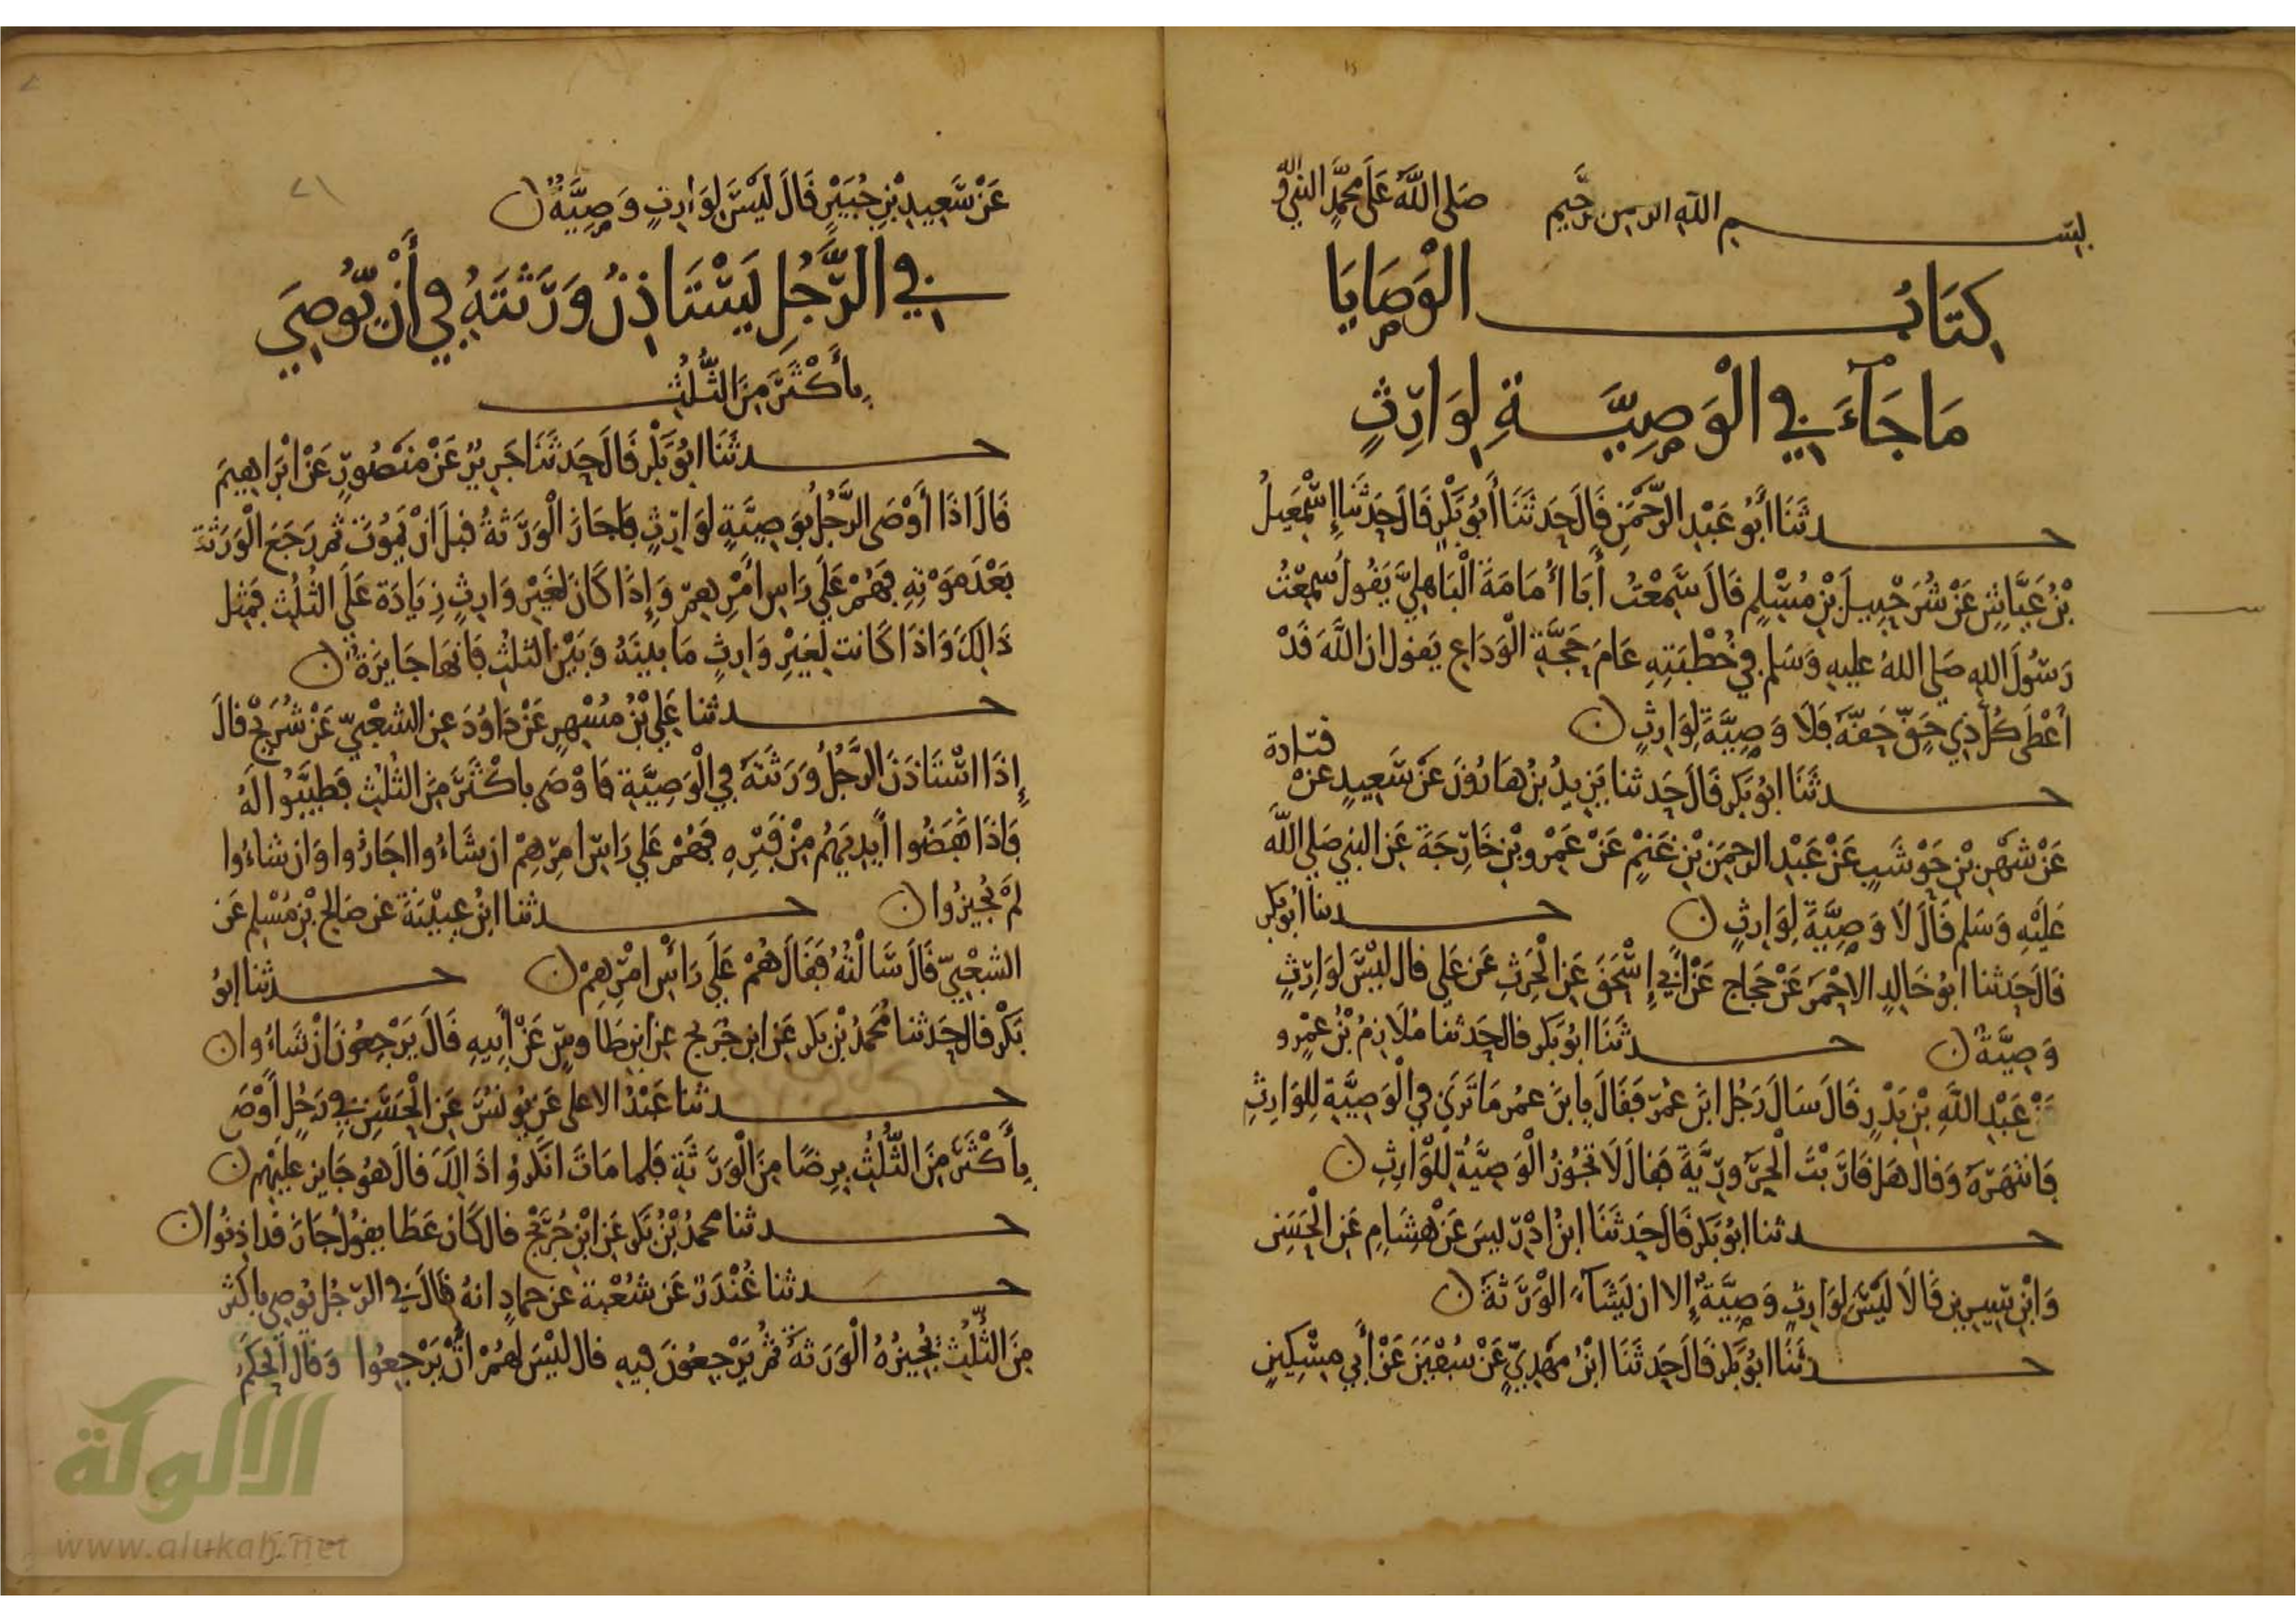 بسم الله الرحمن الرحيم صلى الله على محمد النبي وآله
كِتَابُ الْوَصَايَا
مَا جَاءَ فِي الْوَصِيَّةِ لِوَارِثٍ
حدثَنَا أَبُو عَبْدِ الرَّحْمَنِ قَالَ حَدثَنَا أَبُو بَكْرٍ قَالَ حَدثَنَا إِسْمَعِيلُ
بْنُ عَيَّاشٍ عَنْ شُرَحْبِيلَ بْنِ مُسْلِمٍ قَالَ سَمِعْتُ أَبَا أُمَامَةَ الْبَاهِلِيَّ يَقُولُ سَمِعْتُ
رَسُولَ اللهِ صَلى اللهُ عليهِ وَسَلم فِي خُطْبَتِهِ عَامَ حَجَّةِ الْوَدَاعِ يَقول ان اللَّهَ قَدْ
أَعْطَى كُلَّ ذِي حَقٍّ حَقَّهُ فَلَا وَصِيَّةَ لِوَارِثٍ ن
حدثَنَا ابُو بَكر قَالَ حَدثنا يَزِيدُ بْنُ هَارُونَ عَنْ سَعِيدٍ عَنْ قتادة
عَنْ شَهْرِ بْنِ حَوْشَبٍ عَنْ عَبْدِ الرحمن بْنِ غَنْمٍ عَنْ عَمْرِو بْنِ خَارِجَةَ عَنِ النبي صَلى اللَّه
عَلَيْهِ وَسَلم قَالَ لَا وَصِيَّةَ لِوَارِثٍ ن حدثنا أبُو بَكر
قال حَدثنا ابُو خَالِدٍ الاحْمَر عَنْ حَجاج عَنْ أَبِي إِسْحَقَ عَنِ الْحرِثِ عَن عَلي قال لَيْسَ لوَارِثٍ
وَصِيَّةٌ ن حدثَنَا ابُو بَكر قال حَدثنا مُلَازِمُ بْنُ عَمْرٍو
عَنْ عَبْدِ اللَّهِ بْنِ بَدْرٍ قَالَ سَالَ رَجُل ابْنَ عُمَرَ فَقَالَ يا بْنَ عمُر مَا تَرَى فِي الْوَصِيَّةِ لِلوَارِثِ
فَانْتَهَرَهُ وَقال هَل قَارَبْتَ الْحَرُورِيَّةَ فقال لَا تَجُوزُ الْوَصِيَّةُ لِلْوَارِثِ ن
حدثنا ابُو بَكر قَالَ حَدثَنَا ابْنُ ادْرِيسَ عَنْ هِشَامٍ عَنِ الْحَسَنِ
وَابْنِ سِيرِين قَالَا لَيْسَ لِوَارِثٍ وَصِيَّةٌ إِلا ان يَشَاءَ الْوَرَثَةُ ن
حدثَنَا ابُو بَكر قَالَ حَدثَنَا ابْنُ مَهْدِيٍّ عَنْ سُفْيَنَ عَنْ أَبِي مِسْكِينٍ
عَنْ سَعِيدِ بْنِ جُبَيْرٍ قَالَ لَيْسَ لِوَارِثٍ وَصِيَّةٌ ن
فِي الرَّجُلِ يَسْتَاذِنُ وَرَثَتَهُ فِي أَنْ يُوصِيَ
بِأَكْثَرَ مِنَ الثُّلُثِ
حدثَنَا ابُو بَكْر قَالَ حَدثَنَا جَرِيرٌ عَنْ مَنْصُورٍ عَنْ ابْرَاهِيمَ
قَالَ اذَا أَوْصَى الرَّجُلُ بوَصِيَّةٍ لوَارِثٍ فاجَازَ الْوَرَثةُ قبلَ انْ يَمُوتَ ثم رَجَعَ الْوَرَثَة
بَعْدَ مَوْتِهِ فَهُمْ عَلَى رَاسِ أَمْرِهِمْ وَإِذَا كَانَ لِغَيْرِ وَارِثٍ زِيَادَة عَلَى الثُلُثِ فَمِثل
ذَالِكَ وَاذَا كَانت لِغَيْرِ وَارِثٍ مَا بينَهُ وَبَيْنَ الثلثِ فَانهَا جَايزَةٌ ن
حدثنا عَلِي بْنُ مُسْهِرٍ عَنْ دَاوُدَ عن الشعْبِيّ عَنْ شُرَيْحٍ قالَ
إِذَا اسْتَاذَنَ الرَّجُلُ وَرَثَتَهُ فِي الْوَصِيَّةِ فَاوْصَى باكْثَرَ مِنَ الثلُثِ فَطَيَّبُوا لَهُ
فَاذَا نَفَضُوا أَيدِيَهُمْ مِنْ قَبْرِهِ فَهُمْ عَلى رَاسِ امْرِهِمْ ان شَاءُوا اجَازُوا وَان شاءُوا
لَمْ يُجِيزُوا ن حدثنا ابْنُ عُيَيْنَةَ عَن صَالِح بْنِ مُسْلِمٍ عَن
الشعْبِيِّ قَالَ سَالْتُهُ فَقَالَ هُمْ عَلَى رَأْسِ امْرِهِمْ ن حدثنا ابُو
بَكْر قال حَدثنا مُحَمدُ بْنُ بَكر عَنِ ابن جُرَيج عَنِ ابن طَاوسٍ عَنْ أَبِيهِ قَالَ يَرْجِعُونَ انْ شَاءُوا ن
حدثنا عَبْدُ الاعلى عَن يُونُسَ عَنِ الْحَسَنِ فِي رَجُلٍ أَوْصَى
بِأَكْثَرَ مِنَ الثُّلُثِ بِرِضًا مِنَ الْوَرَثَةِ فَلما مَاتَ انكَرُوا ذَالِكَ قالَ هُوَ جَايز عَلَيْهِم ن
حدثنا محمدُ بْنُ بَكر عَنِ ابْنِ جُرَيْج قال كَان عَطَا يقُولُ جَازَ قَد اذِنُوا ن
حدثنا غُنْدَرٌ عَن شُعْبة عن حمادٍ انهُ قَالَ فِي الرّجُل يُوصِي باكثَر
مِنَ الثُّلُثِ يُجِيزُهُ الْوَرَثَةُ ثُمَّ يَرْجِعُونَ فِيهِ قال لَيْسَ لَهُمْ أَنْ يَرْجِعُوا وَقَال الحَكَمُ
الألوكة
www.alukah.net